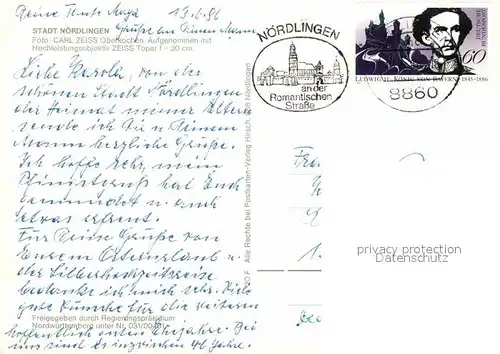 Deine Tante Maya 13.6.86
Grüße an Deinen Mann
STADT NÖRDLINGEN
Foto: CARL ZEISS Oberkochen. Aufgenommen mit
Hochleistungsobjektiv ZEISS Topar 1 - 20 cm.
Liebe Karola, von der
schönen Stadt Nördlingen
der Heimat meiner Eltern
sende ich Dir u. Deinem
Mann herzliche Grüße.
Ich hoffe sehr, mein
Pfingstgruß hat Euch
u. auch
etwas erfreut.
Für Deine Grüße von
Eurem
der Silberhochzeitsreise
bedanke ich mich sehr. Viele
gute Wünsche für die weiteren
Freigegeben durch Regierungspräsidium
Nordwürttemberg unter Nr. 031/00
hoffentlich guten Ehejahre. Bei
uns sind es inzwischen 46 Jahre.
Alle Rechte bei Postkarten-Verlag Hirsch, Nördlingen
NÖRDLINGEN
an der
Romantischen
Straße
DEUTSCHE BUNDESPOST
60
LUDWIG II. KÖNIG VON BAYERN 1845-1886
8860
Fra
1.
privacy protection
Datenschutz